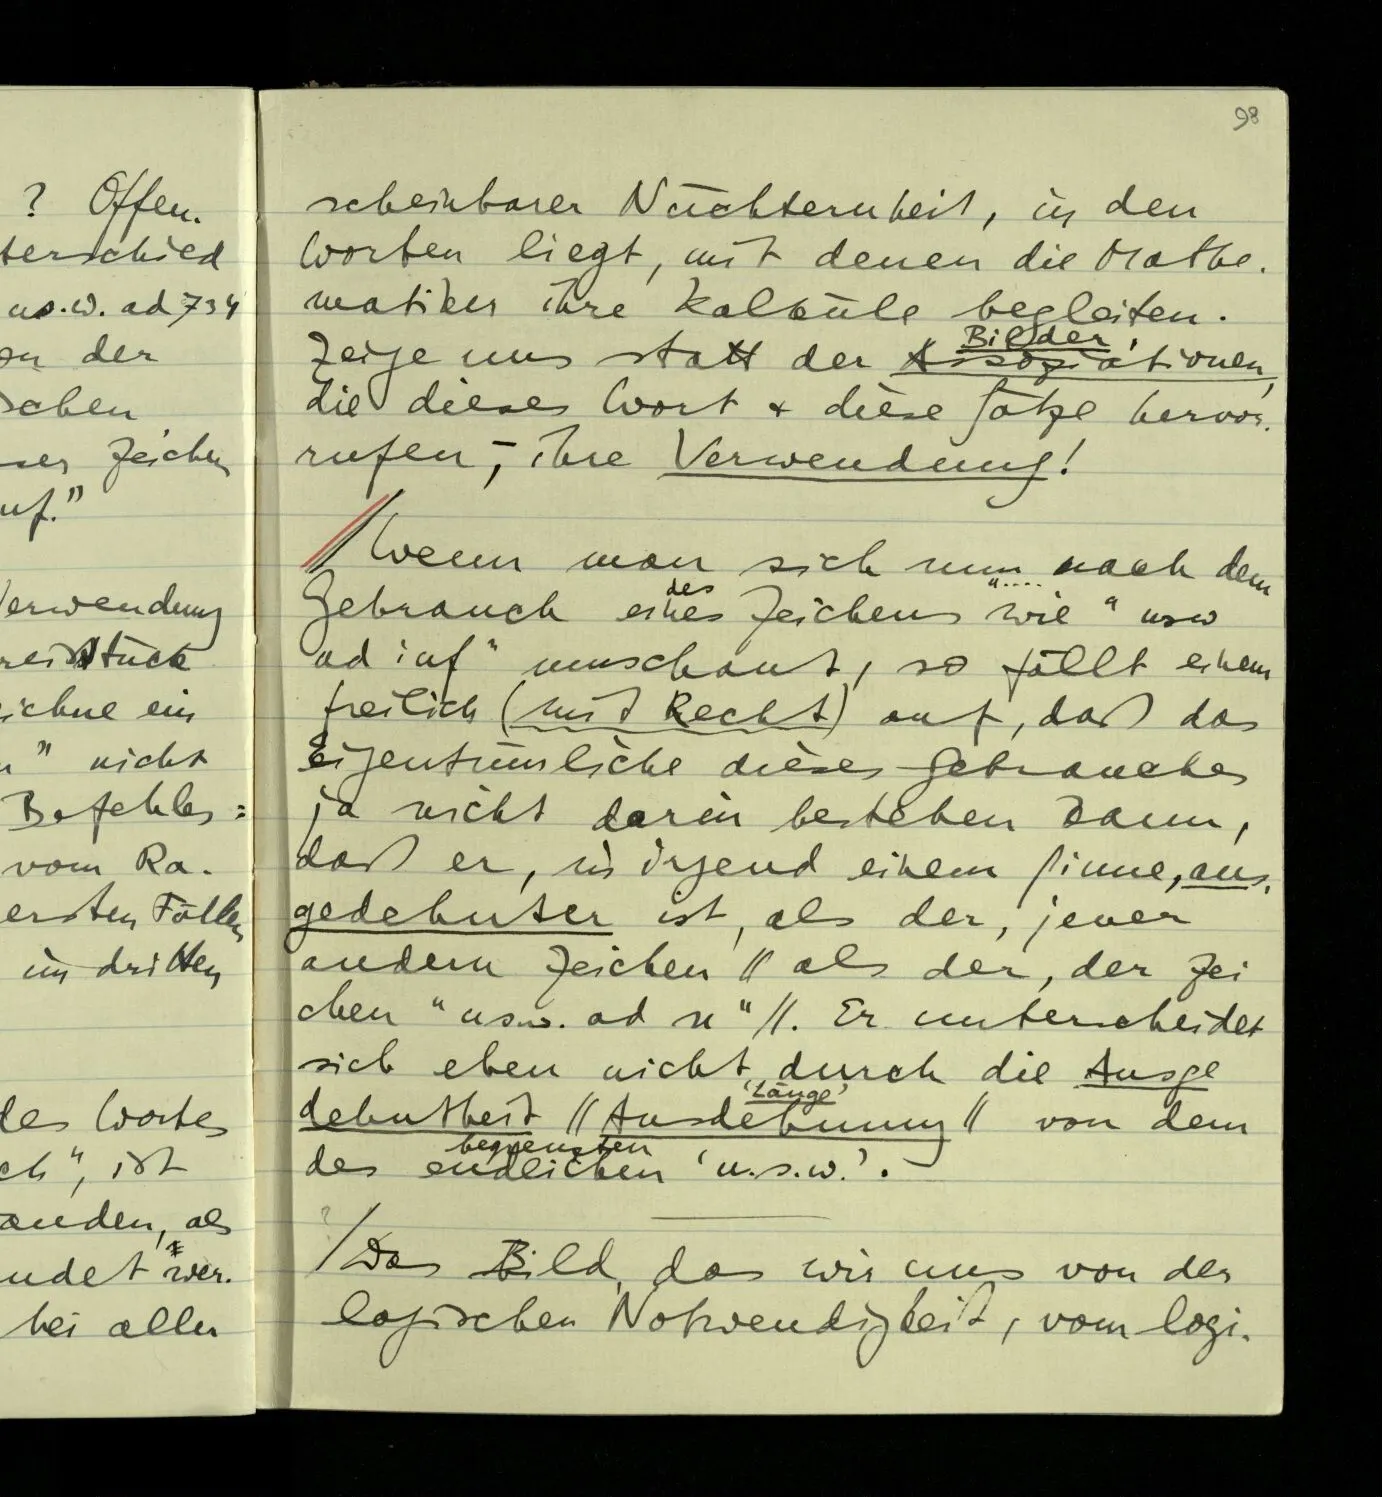 98
? Offen.
terschied
us.w. ad 734
on der
schen
ser Zeichen
auf."
Verwendung
reisstück
ichne ein
n" nicht
Befehles:
vom Ra-
ersten Fällen
im dritten
des Wortes
ch", ist
anden, als
ndet wer-
bei allen
scheinbarer Nüchternheit, in den
Worten liegt, mit denen die Mathe-
matiker ihre Kalküle begleiten.
Bilder,
Zeige uns statt der Assoziationen,
die dieses Wort & diese Sätze hervor-
rufen, – ihre Verwendung!
// Wenn man sich nun nach dem
des
Gebrauch eines Zeichens "..... wie " usw
ad inf" umschaut, so fällt einem
freilich (mit Recht) auf, daß das
Eigentümliche dieses Gebrauches
ja nicht darin bestehen kann,
daß er, in irgend einem Sinne, aus-
gedehnter ist, als der, jener
andern Zeichen // als der, der Zei
chen "usw. ad n" //. Er unterscheidet
sich eben nicht durch die Ausge
'Länge'
dehntheit // Ausdehnung // von dem
begrenzten
des endlichen 'u.s.w.'.
? / Das Bild, das wir uns von der
logischen Notwendigkeit, vom logi-